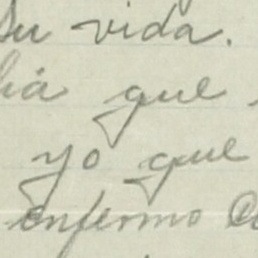 su vida.
que
yo que
enfermo